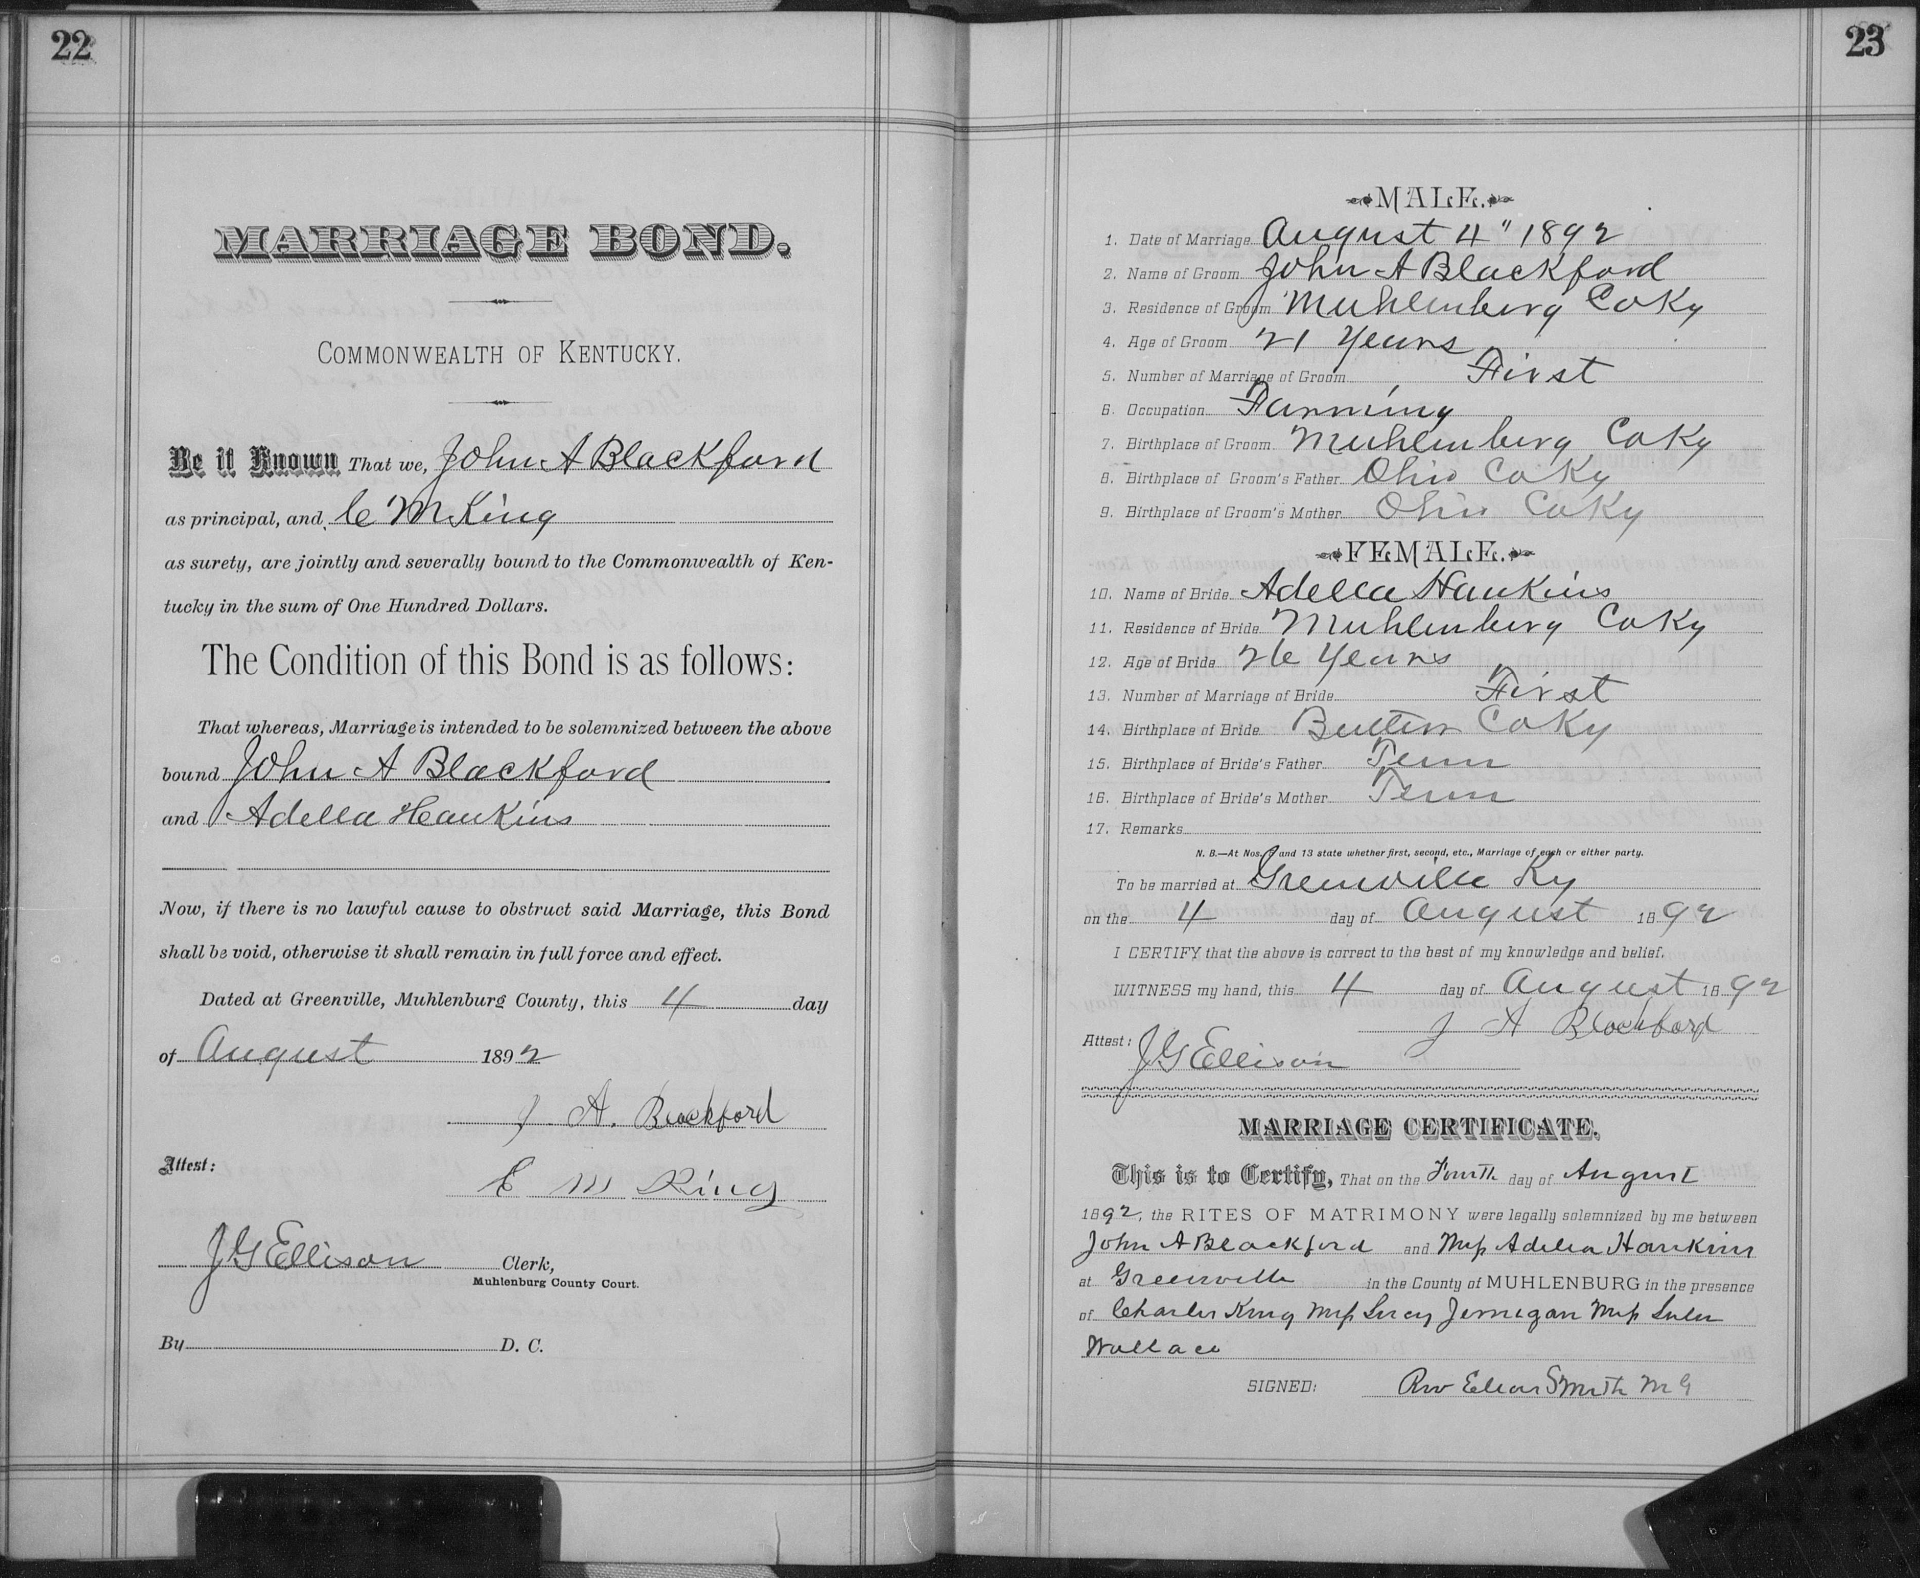 22
MARRIAGE BOND.
COMMONWEALTH OF KENTUCKY.
Be it Known That we, John A Blackford
as principal, and C M King
as surety, are jointly and severally bound to the Commonwealth of Ken-
tucky in the sum of One Hundred Dollars.
The Condition of this Bond is as follows:
That whereas, Marriage is intended to be solemnized between the above
bound John A Blackford
and Adella Hankins
Now, if there is no lawful cause to obstruct said Marriage, this Bond
shall be void, otherwise it shall remain in full force and effect.
Dated at Greenville, Muhlenburg County, this 4 day
of August 1892
J. A. Blackford
Attest:
C M King
J G Ellison Clerk,
Muhlenburg County Court.
By D. C.
23
MALE.
1. Date of Marriage August 4" 1892
2. Name of Groom John A Blackford
3. Residence of Groom Muhlenberg Co Ky
4. Age of Groom 21 Years
5. Number of Marriage of Groom First
6. Occupation Farming
7. Birthplace of Groom Muhlenberg Co Ky
8. Birthplace of Groom's Father Ohio Co Ky
9. Birthplace of Groom's Mother Ohio Co Ky
FEMALE.
10. Name of Bride Adella Hankins
11. Residence of Bride Muhlenberg Co Ky
12. Age of Bride 26 Years
13. Number of Marriage of Bride First
14. Birthplace of Bride Butler Co Ky
15. Birthplace of Bride's Father Tenn
16. Birthplace of Bride's Mother Tenn
17. Remarks
N. B.—At Nos. 5 and 13 state whether first, second, etc., Marriage of each or either party.
To be married at Greenville Ky
on the 4 day of August 1892
I CERTIFY that the above is correct to the best of my knowledge and belief.
WITNESS my hand, this 4 day of August 1892
J A Blackford
Attest: J G Ellison
MARRIAGE CERTIFICATE.
This is to Certify, That on the Fourth day of August
1892, the RITES OF MATRIMONY were legally solemnized by me between
John A Blackford and Miss Adelia Hankins
at Greenville in the County of MUHLENBURG in the presence
of Charles King Miss Lucy Jernigan Miss
Wallace
SIGNED: Rev Smith M G